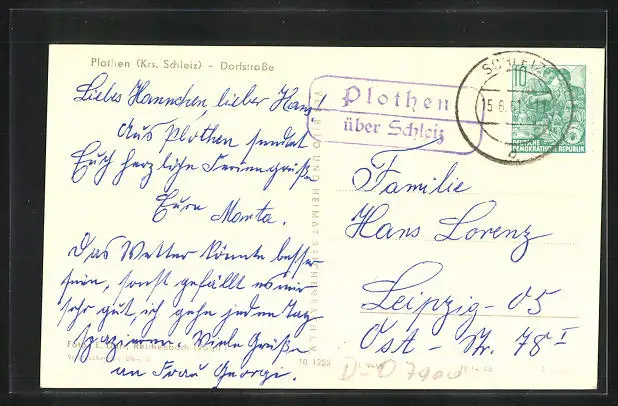 Plothen (Krs. Schleiz) - Dorfstraße
Liebes Hannchen, lieber Hans!
Aus Plothen sendet
Euch herzliche Feriengrüße
Eure Marta.
Das Wetter könnte besser
sein, sonst gefällt es mir
sehr gut, ich gehe jeden Tag
spazieren. Viele Grüße
an Frau Georgi.
Plothen
über Schleiz
SCHLEIZ
15.6.61
10
DEUTSCHE
DEMOKRATISCHE REPUBLIK
Familie
Hans Lorenz
Leipzig - O5
Ost - Str. 78 I
VEB BILD UND HEIMAT REICHENBACH I. V.
Reichenbach
10 1255
D-O 7900